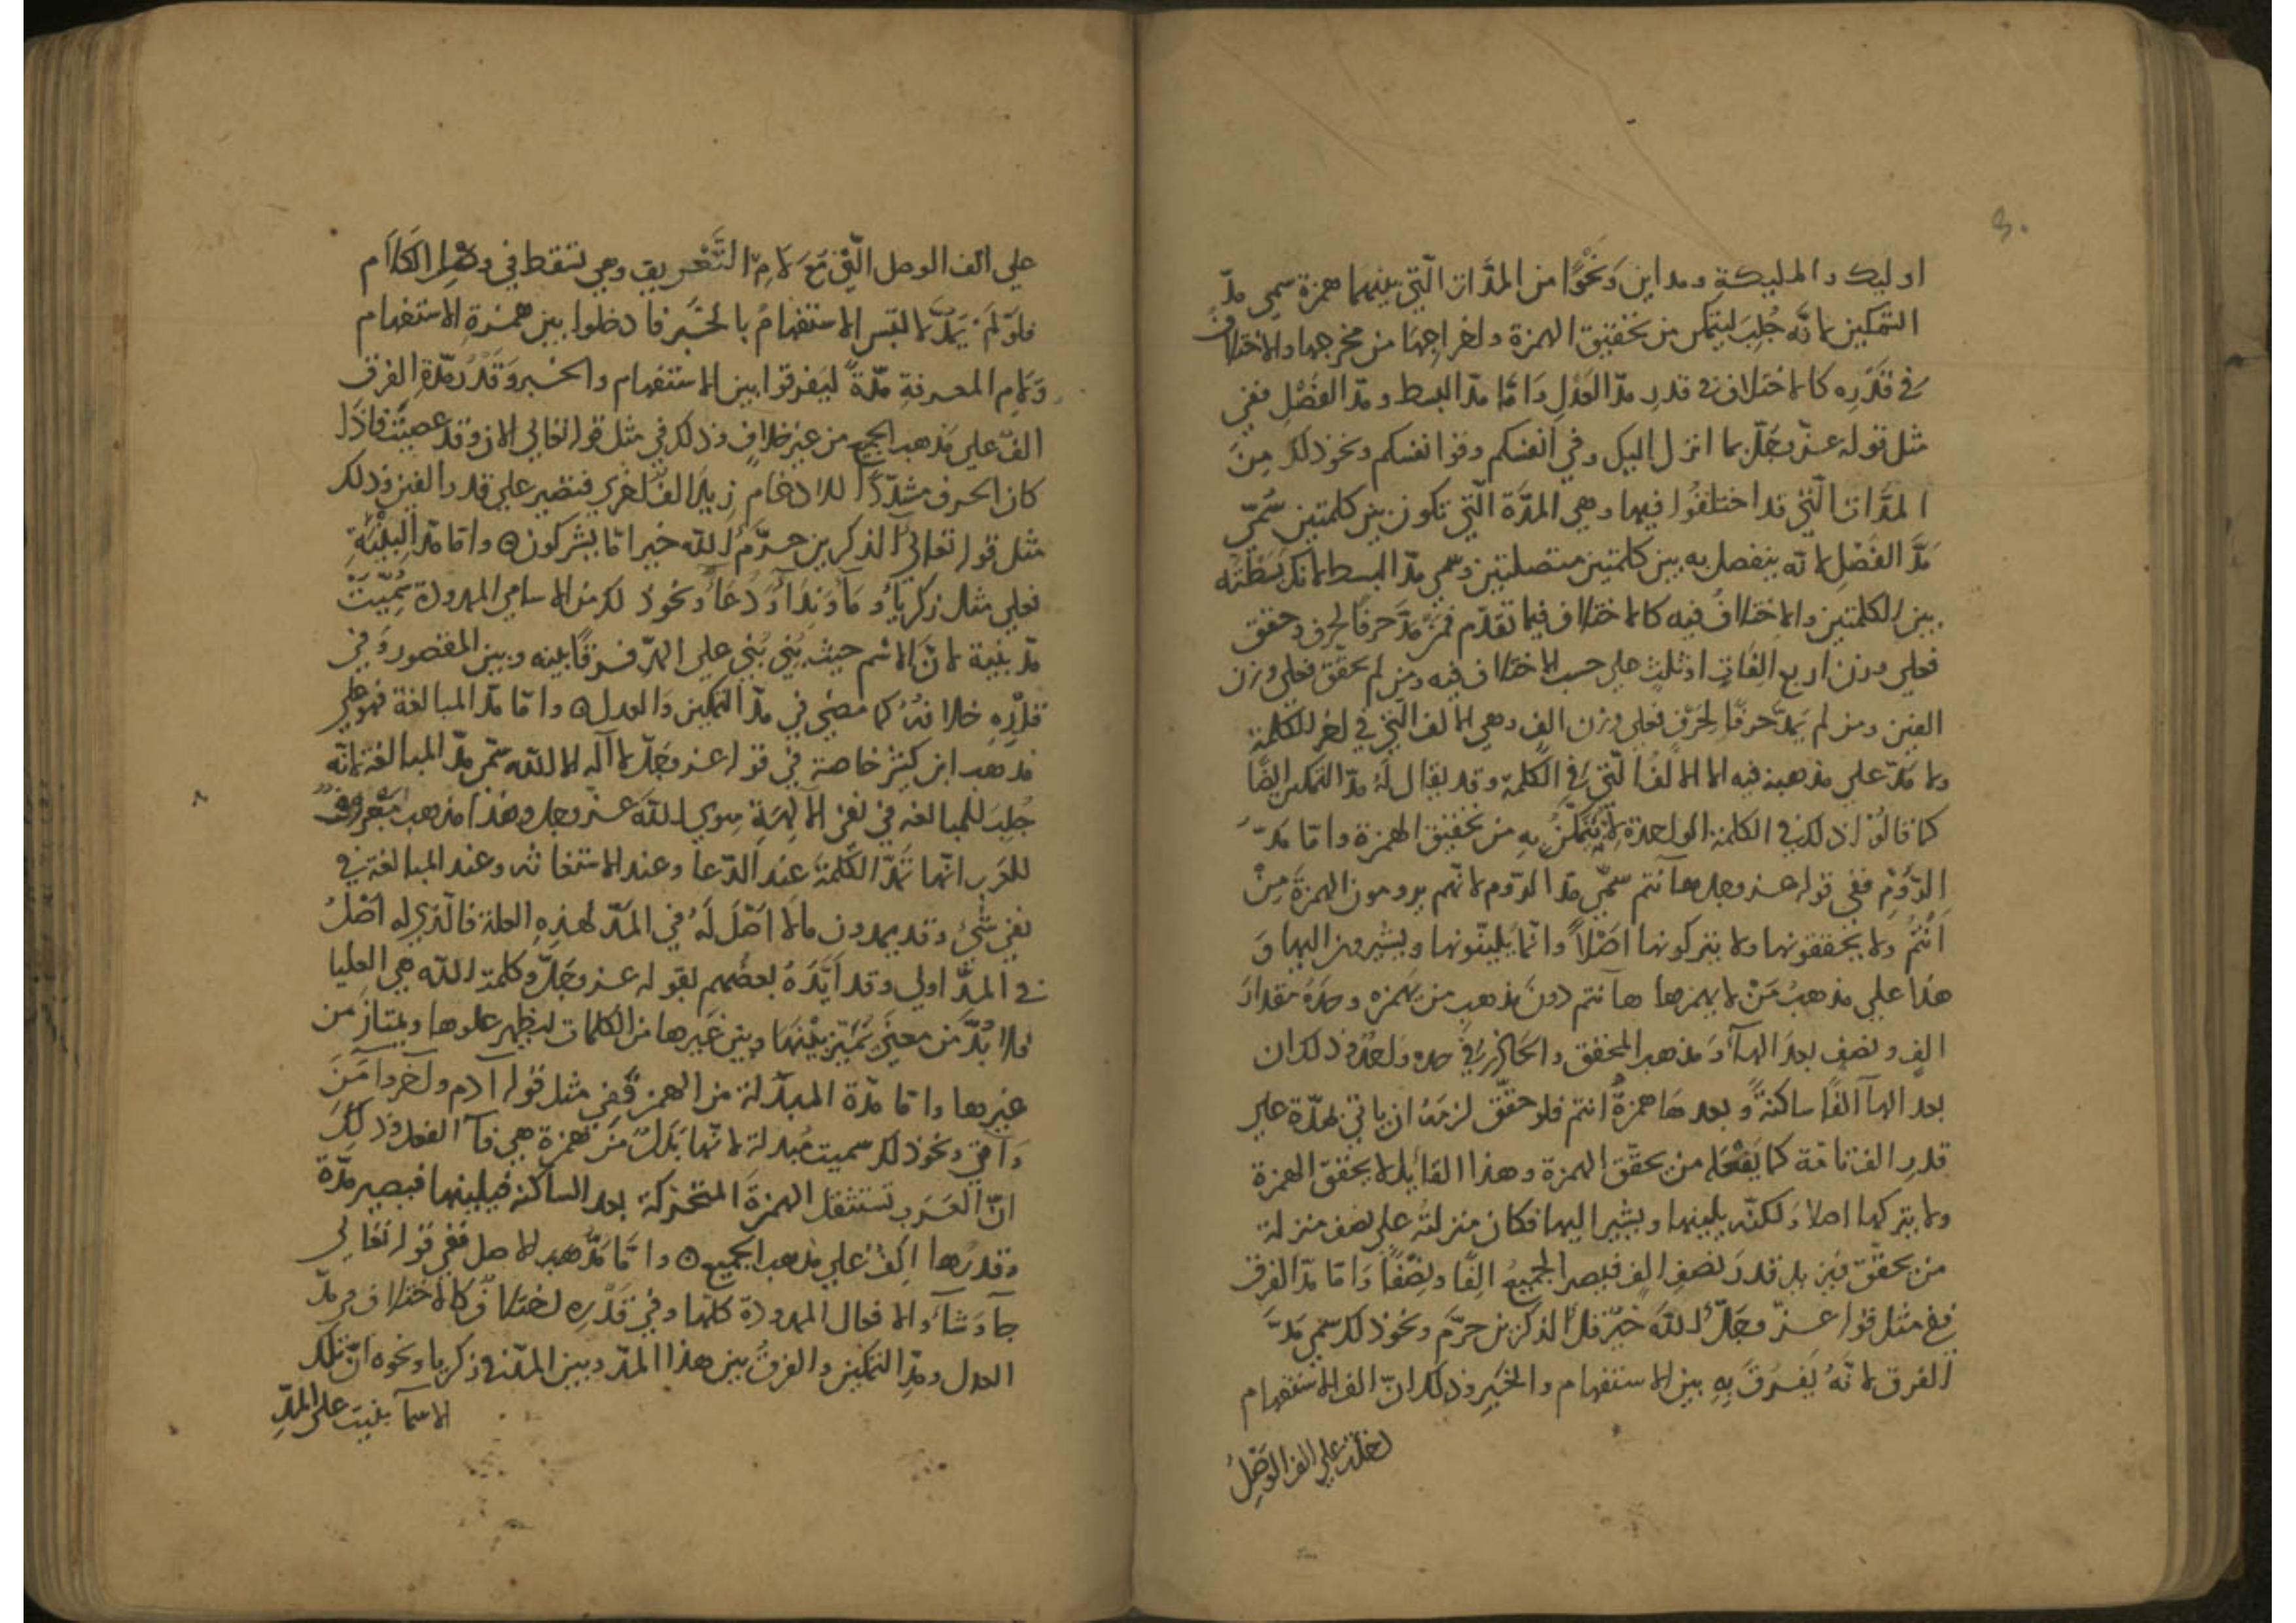 اوليك والمليكة ومداين ونَحْوَها من المدّات الّتي بينهما همزة سمي مدّ
التمكين لانّه جُلِبَ ليتمكن من تخفيق الهمزة واخراجها من مخرجها والاختلافُ
في قَدْرِه كالاختلاف في قدر مدّ العَدْلِ وَامَّا مدّ البسط ومدّ الفَصْلِ ففي
مثل قوله عزّ وجَلّ بما انزل اليك وفي انفسكم وقوا انفسكم ونحو ذلك مِنَ
المدَّات الّتي قد اختلفُوا فيها وهي المدّة الّتي تكون بين كلمتين سُمّي
مَدَّ الفَصْلِ لانّه ينفصل به بين كلمتين متصلتين وسمي مدّ البسط لانك بَسَطْتَه
بين الكلمتين والاختلافُ فيه كالاختلاف فيما تقدّم فمَنْ مَدّ حَرفًا لحرف وحقق
فعلى وزن اربع الِفَاتٍ او ثلثٍ على حسب الاختلاف فيه ومن لم يحقّق فعلى وزن
الفين ومن لم يَمُدّ حرفًا لِحَرْفٍ فعلى وزن الف وهي الالف الّتي في اخر الكلمة
ولا مَدّ على مذهبه فيه الا الالفُ الّتي في الكلمة وقد يقال لَهُ مدّ التمكين ايضًا
كما قالُوْا ذلك في الكلمة الواحدة لانّه يُتَمَكَّنُ بِهِ من تحقيق الهمزة واما مَدّ
الرَّوْمِ ففي قوله عز وجل هاَ انتم سمّي مدّ الرّوم لانّهم يرومون الهمزةَ مِنْ
اَنْتُمْ ولا يحققونها ولا يتركونها اصْلاً وانّما يُليّنونها ويشيرون اليها وَ
هذا على مذهبُ مَنْ لا يهمزها هاَ نتم دونَ مذهب من يَهمزه وحدّهُ مقدارَ
الفٍ ونصفٍ بعد الهاَ وَمذهب المحقق والحاذر في حده واحدٌ وذلك ان
بعد الهاَ الفًا ساكنةً وبعدها همزةُ انتم فلو حقّق لزمَهُ ان ياتي بمدّة على
قدرِ الف تامّة كما يَفْعَله من يحقّق الهمزة وهذا القايل لا يحققّ الهمزة
ولا يتركها اصلا وَلكنّه يلينها ويشير اليها فكان منزلتُه على نصف منزلة
من يحقّق فيزيد قدرَ نصفِ الف فيصير الجميعُ الِفًا ونِصْفًا وَاما مدّ الفرق
ففي مثل قوله عزّ وجَلّ اَللّه خَيْرٌ قل اَلذكرين حرّمَ ونحو ذلك سمّي مَدَّ
الفرق لانّهُ يَفرُقَ بِهِ بين الاستفهام والخبَرِ وذلك انّ الف الاستفهام
دخلت على الف الوَصْلِ
على الف الوصل الّتي مَعَ لامِ التَّعْريف وهي تسقط في وَصْلِ الكلاَم
فلوْ لَم يَمُدّ لالتبس الاستفهامُ بالخَبَر فادخلوا بين همزةِ الاستفهام
وَلامِ المعرفةِ مدّةً ليَفرقوا بين الاستفهام والخبر وَقدْرُ مدّةِ الفرق
الفٌ على مَذهب الجميع من غير خلافٍ وذلك في مثل قوله تعالى الان وقد عصيتَ فاذا
كان الحرف مشدّدًا للادغام زيدَ الفٌ اخرى فتصير على قدر الفين وذلك
مثل قوله تعالى اَلذكرين حرّمَ اَللّه خير اما يشركون ۞ واما مدّ البِنْيَةِ
فعلى مثل زكرياَ وَمَاَ وَنِدَاَ وَدُعَاَ ونحوذ لك من الاسامي الممدودة سُمِّيَتْ
مدّ بنية لانّ الاسم حيث بُنِي بُنِي على المدّ فرقًا بينه وبين المقصور وَفي
قدْرِهِ خلافهُ كما مضي في مدّ التمكين وَالعدل ۞ واما مدّ المبالغة فهو على
مذهب ابن كثير خاصة في قوله عز وجلّ لاَ اله الا اللّه سمّي مدّ المبالغة لانّه
جُلِبَ للمبالغه في نفي الاَلِهَةِ سوي اللّه عز وجل وهذا مذهب معروفٌ
للعَرب انّها تَمُدّ الكلمةَ عند الدّعا وعند الاستغاثه وعند المبالغة في
نفي شيْء وقد يمدون ما لا اصْلَ لَهُ في المَدّ لهذِهِ العلة فالّذي له اصْلٌ
في المَدّ اولى وقد اَيَّدَهُ بعضُهم بقوله عز وجَلّ وكلمة اللّه هي العليا
فلا بُدَّ من معنًى تُميّز بيْنَها وبين غَيرها من الكلمات ليظهر علوها ويمتازَ من
غيرها واما مدّة المبدلة من الهمزة ففي مثل قوله آدم واَخر واَمَنَ
وَاَتي ونحو ذلك سميت مُبدلة لانّها بَدَلٌ مِنَ همزة هي فاَ الفعل وذلِكَ
انّ العَرَب تستثقل الهمزةَ المتحرّكة بعد الساكنة فيلينها فيصير مدّة
وقدرُها اَلِفٌ على مذهب الجميع ۞ وامّا مَدّ الاصل ففي قوله تعَالى
جاَ وَشاَ والافعال الممدودة كلّها وفي قدْرِه اختلافٌ كالاختلاف في مدّ
العدل ومدِّ التمكين والفرقُ بين هذا المدّ وبين المدّ في زكريا ونحوه انّ تلك
الاسماَ بنيت على المدِّ